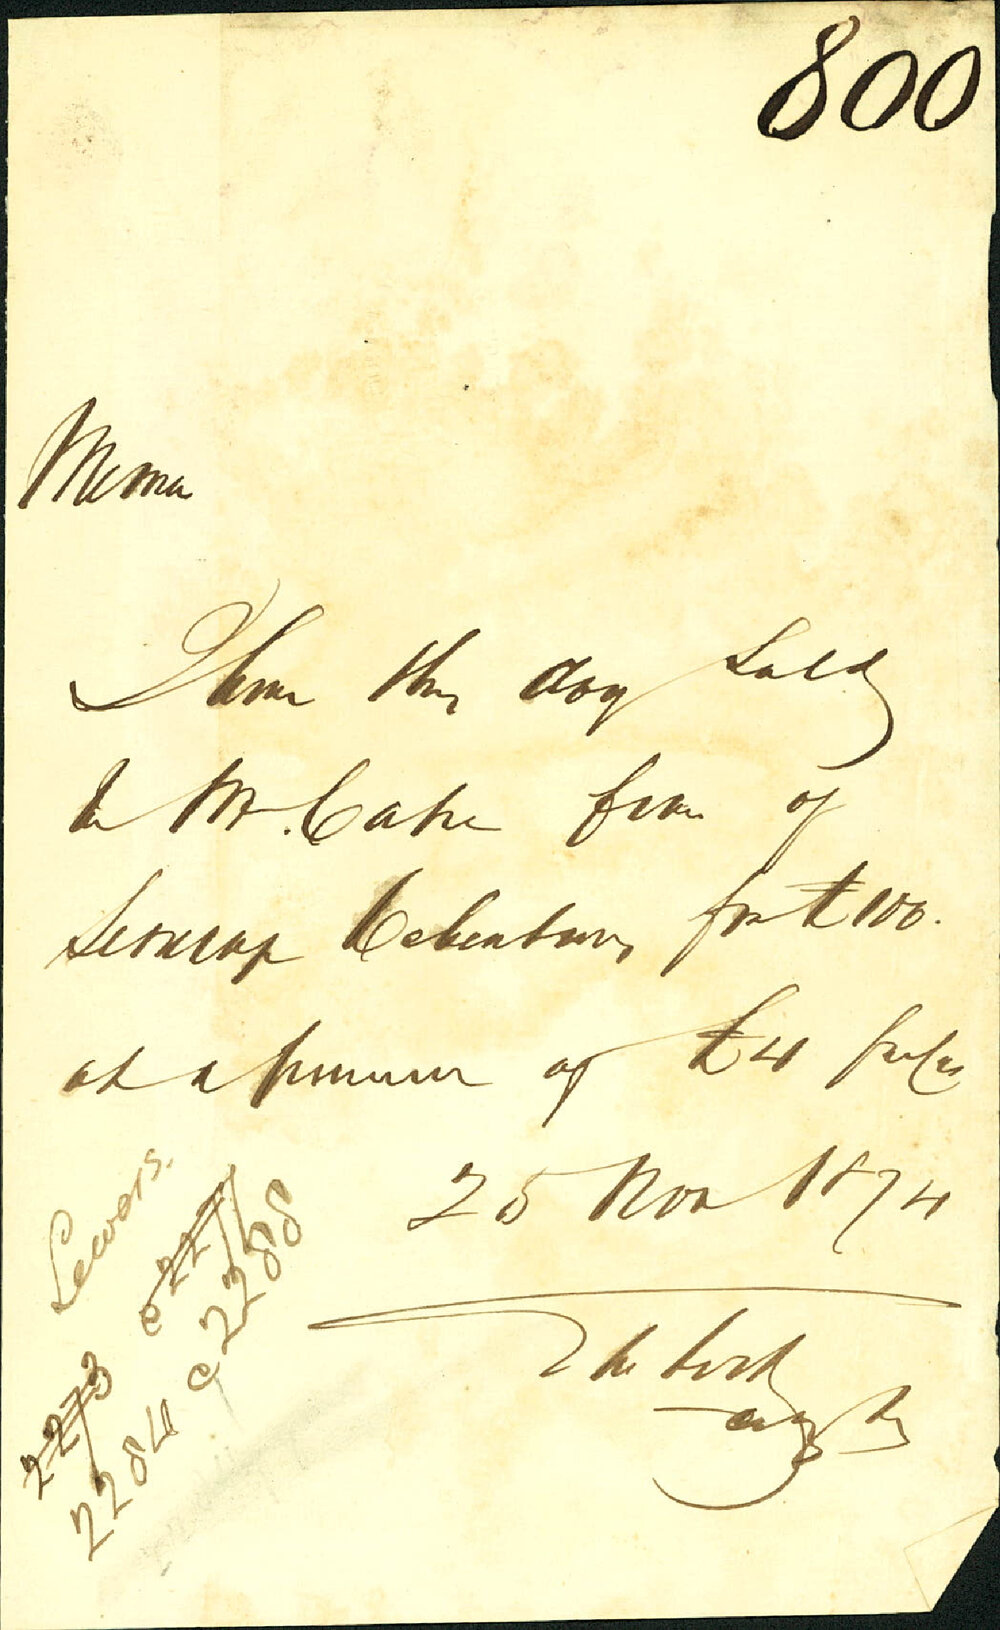 800
Memo
I have this day sold
to Mr. Cape four of
Sewerage Debentures for £100.
at a premium of £4 per
25 Nov 1874
Sewers.
2273 @ 2277
2284 @ 2288